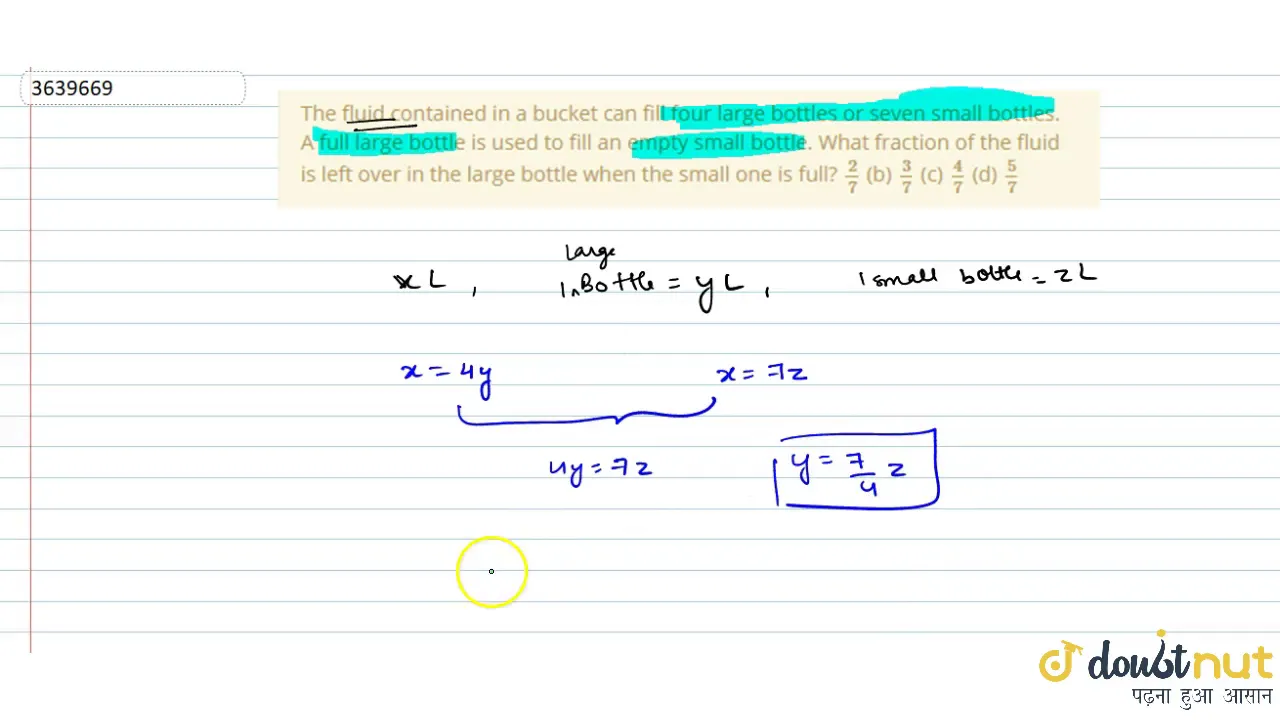 3639669
The fluid contained in a bucket can fill four large bottles or seven small bottles.
A full large bottle is used to fill an empty small bottle. What fraction of the fluid
is left over in the large bottle when the small one is full? 2/7 (b) 3/7 (c) 4/7 (d) 5/7
x L , 1 large Bottle = y L , 1 small bottle = z L
x = 4y x = 7z
4y = 7z y = 7/4 z
doubtnut
पढ़ना हुआ आसान